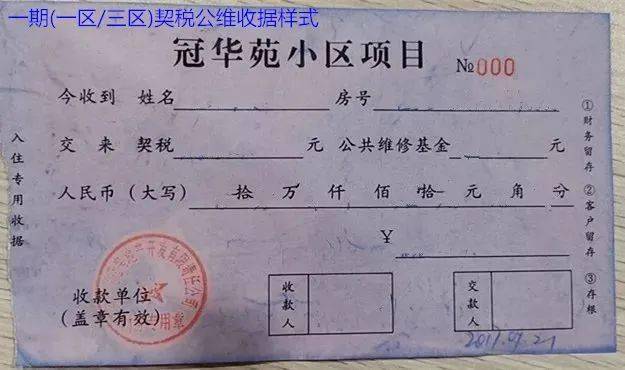 一期(一区/三区)契税公维收据样式
冠华苑小区项目
№000
今收到 姓名 房号
交来 契税 元 公共维修基金 元
人民币(大写) 拾 万 仟 佰 拾 元 角 分
¥
收款单位
(盖章有效)
收款人
交款人
入住专用收据
①财务留存 ②客户留存 ③存根